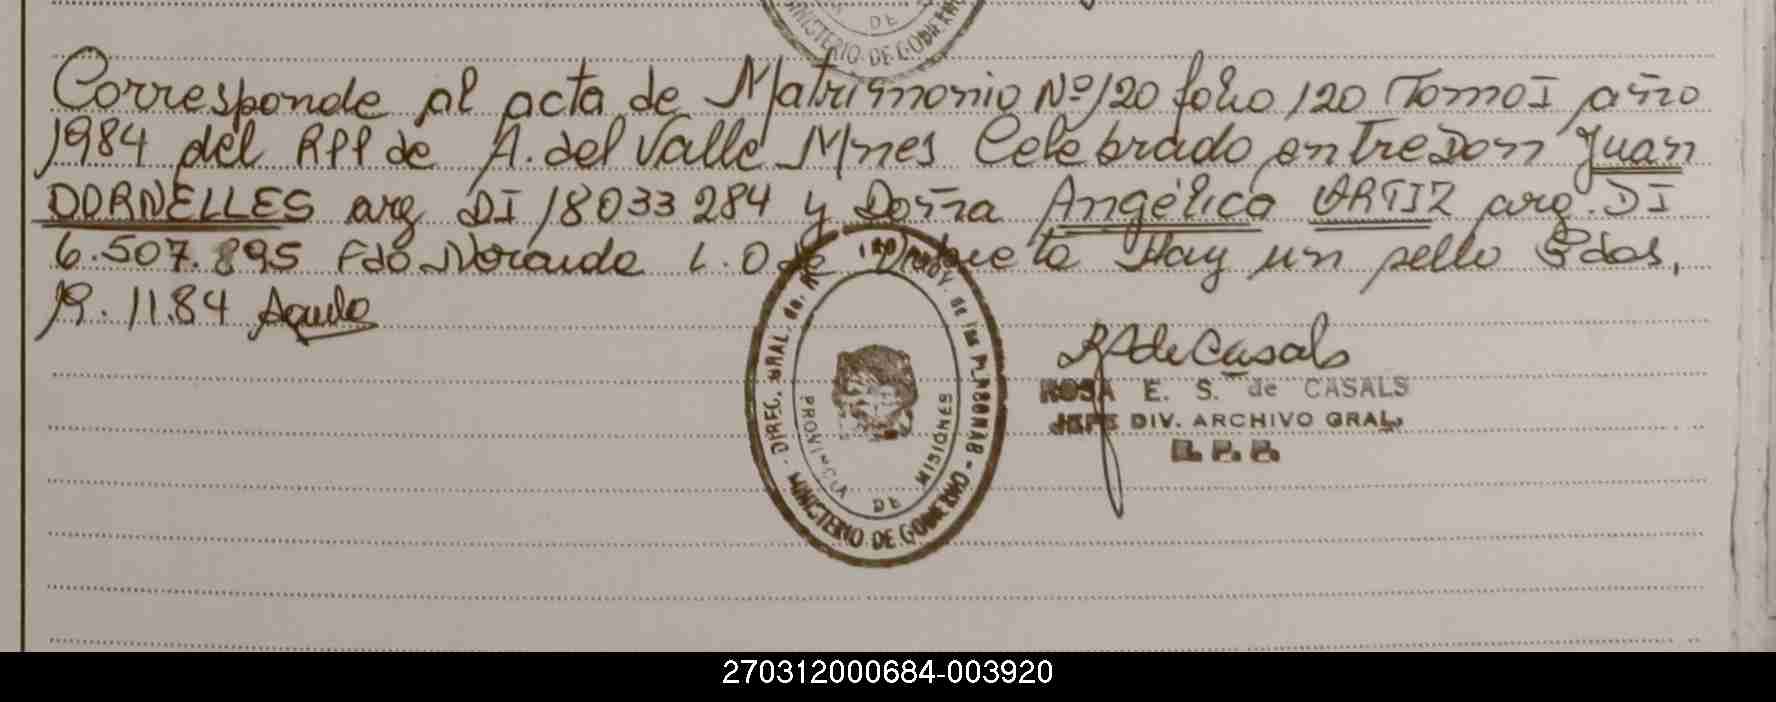 DE
MINISTERIO DE GOBIERNO
Corresponde al acta de Matrimonio Nº 120 folio 120 Tomo I año
1984 del RPP de A. del Valle Mnes Celebrado entre Don Juan
DORNELLES arg DI 18033284 y Doña Angélica ORTIZ arg. DI
6.507.895 Fdo L. O de Hay un sello Pdas,
19.11.84
DIREC. GRAL. de de las PERSONAS - MINISTERIO DE GOBIERNO -
PROVINCIA DE MISIONES
RA de Casals
ROSA E. S. de CASALS
JEFE DIV. ARCHIVO GRAL.
R. P. P.
270312000684-003920